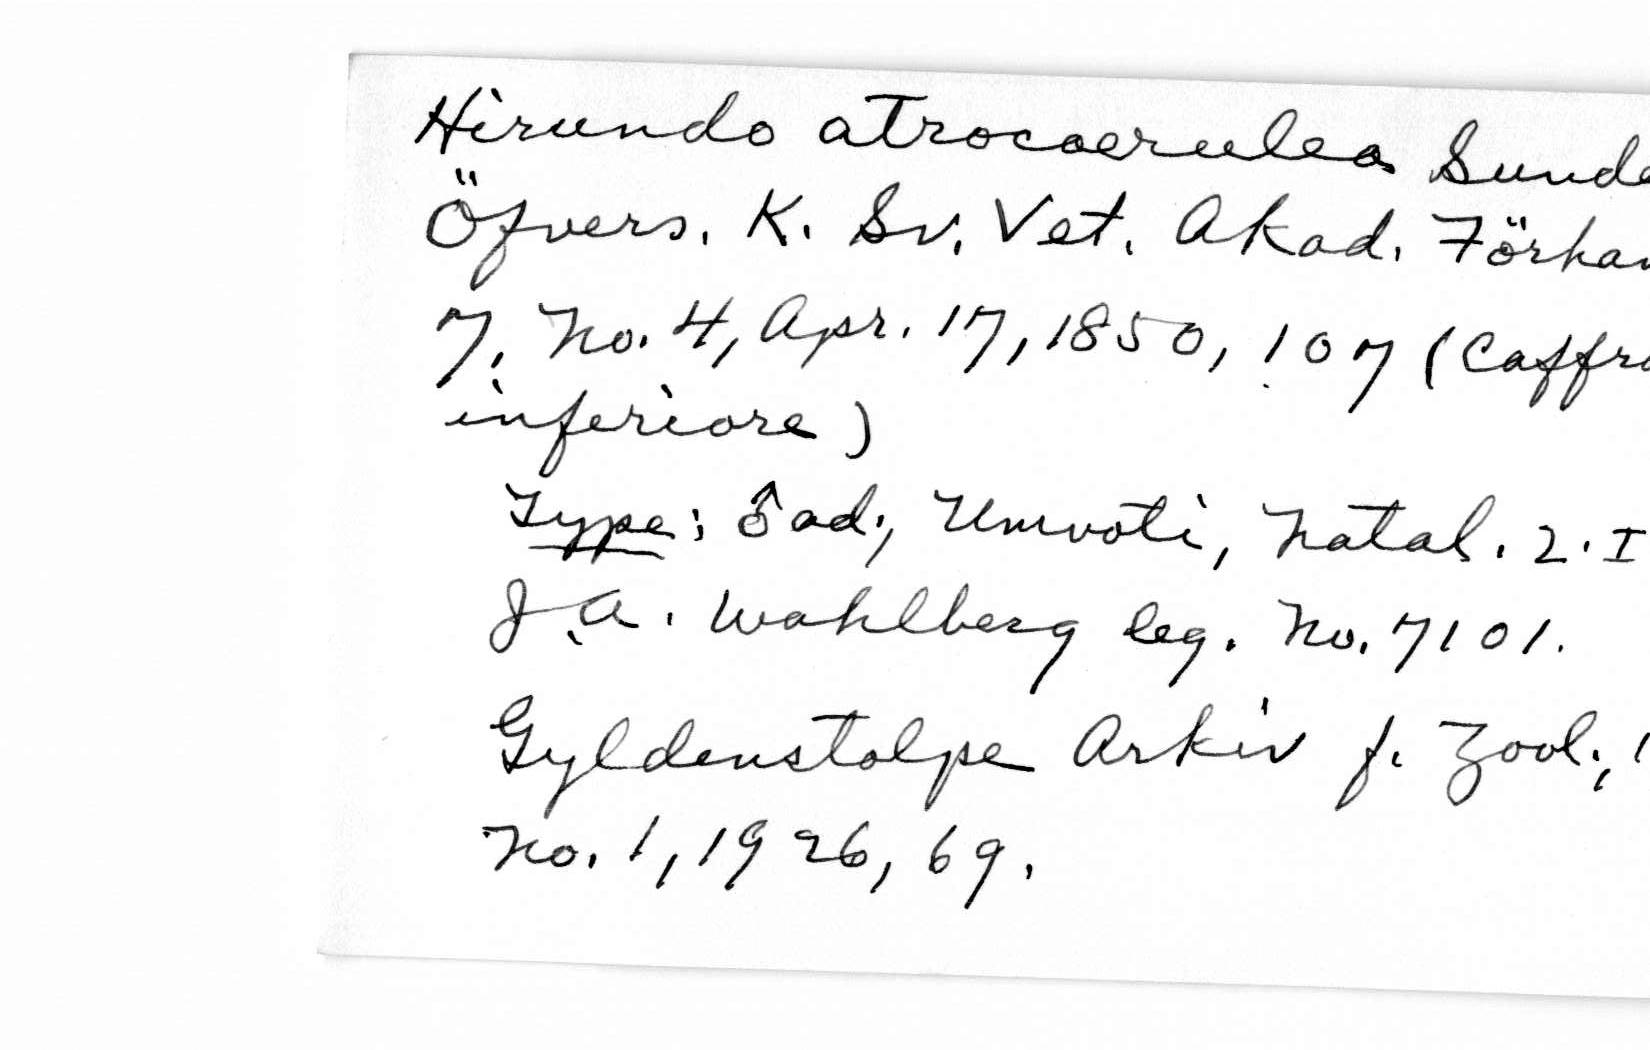 Hirundo atrocaerulea Sunde
Öfvers. K. Sv. Vet. Akad. Förhan
7, No. 4, Apr. 17, 1850, 107 (Caffra
inferiore)
Type: ♂ ad., Umvoti, Natal. 2. I
J.A. Wahlberg leg. No. 7101.
Gyldenstolpe Arkiv f. Zool., 1
No. 1, 1926, 69.